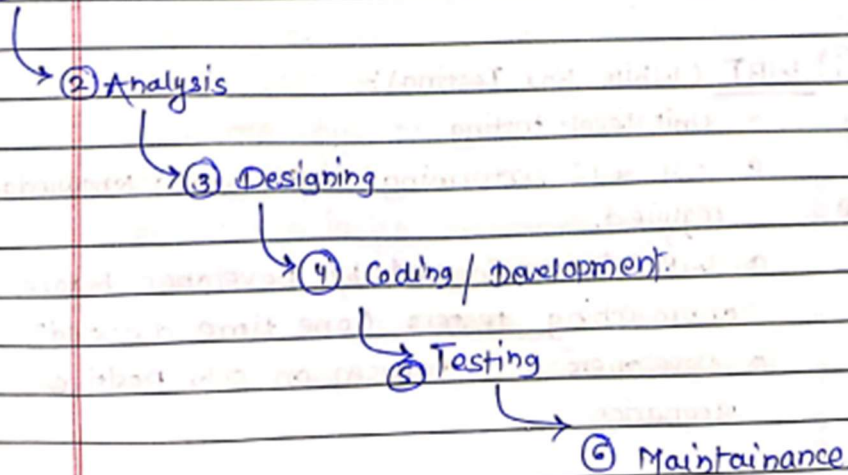 ② Analysis
③ Designing
④ Coding / Development.
⑤ Testing
⑥ Maintainance